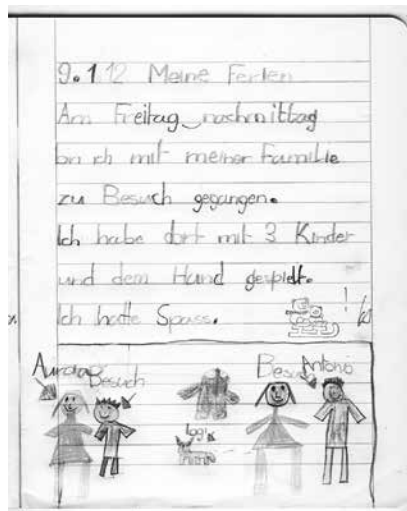 9.1.12 Meine Ferien
Am Freitag nachmittag
bin ich mit meiner Familie
zu Besuch gegangen.
Ich habe dort mit 3 Kinder
und dem Hund gespielt.
Ich hatte Spass. !
Besuch Besuch Antonio